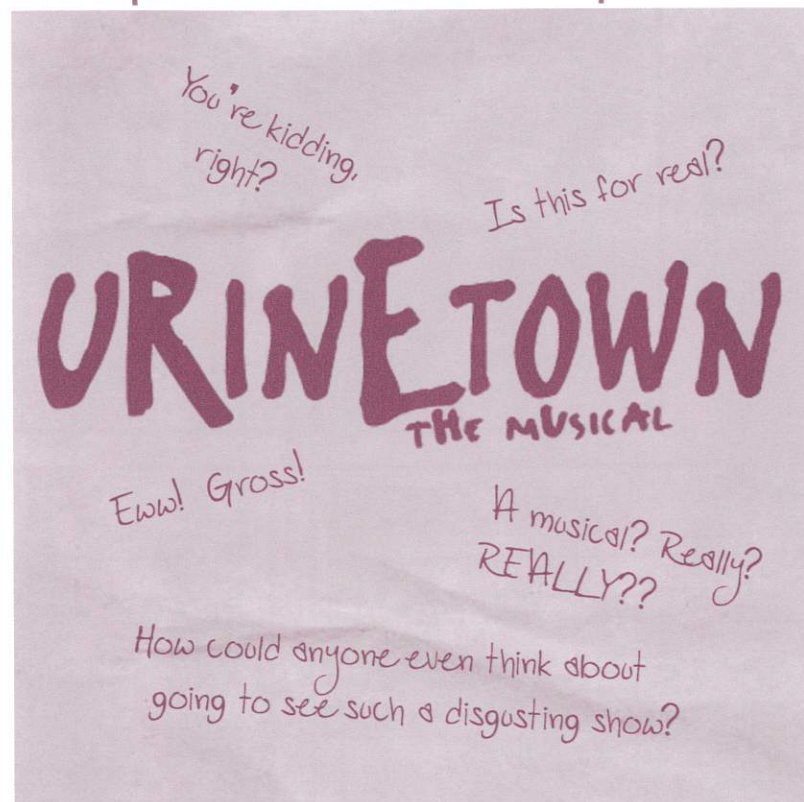 You're kidding,
right?
Is this for real?
URINETOWN
THE MUSICAL
Eww! Gross!
A musical? Really?
REALLY??
How could anyone even think about
going to see such a disgusting show?